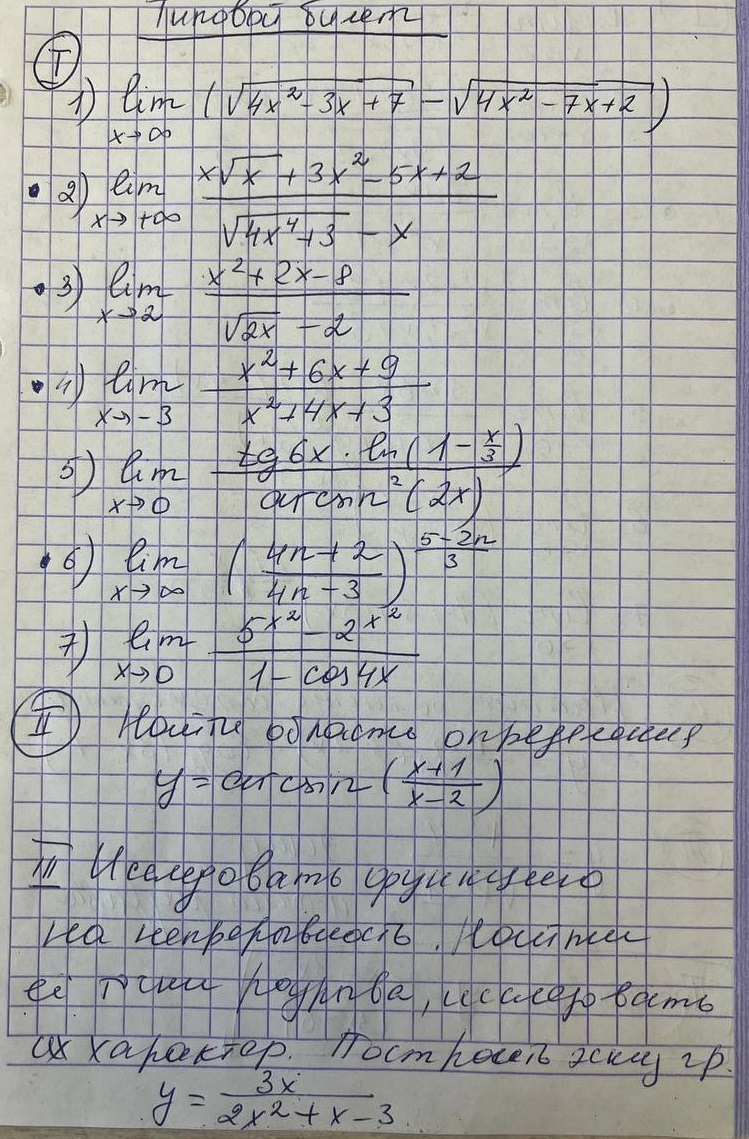 Типовой билет
I
1) lim x→∞ (√(4x² - 3x + 7) - √(4x² - 7x + 2))
• 2) lim x→+∞ (x√x + 3x² - 5x + 2) / (√(4x⁴ + 3) - x)
• 3) lim x→2 (x² + 2x - 8) / (√(2x) - 2)
• 4) lim x→-3 (x² + 6x + 9) / (x² + 4x + 3)
5) lim x→0 (tg 6x · ln(1 - x/3)) / (arcsin²(2x))
• 6) lim x→∞ ((4n + 2) / (4n - 3))^((5 - 2n)/3)
7) lim x→0 (5^(x²) - 2^(x²)) / (1 - cos 4x)
II Найти область определения
y = arcsin((x + 1) / (x - 2))
III Исследовать функцию
на непрерывность. Найти
её точки разрыва, исследовать
их характер. Построить эскиз гр.
y = 3x / (2x² + x - 3)